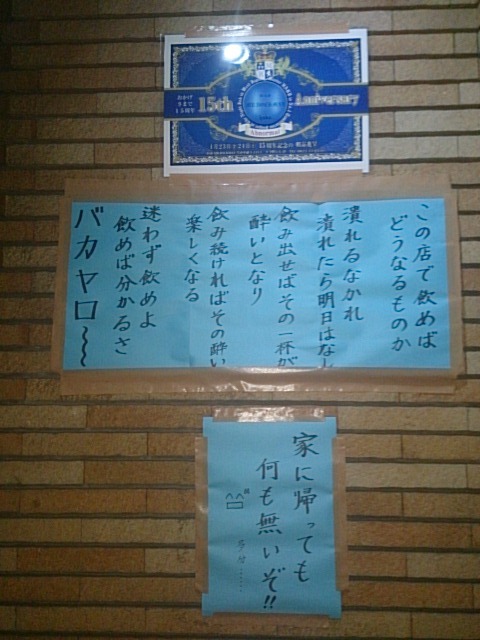 おかげ
さまで
15周年
15th
Anniversary
この店で飲めば
どうなるものか
潰れるなかれ
潰れたら明日はなし
飲み出せばその一杯が
酔いとなり
飲み続ければその酔い
楽しくなる
迷わず飲めよ
飲めば分かるさ
バカヤロ〜〜
家に帰っても
何も無いぞ!!